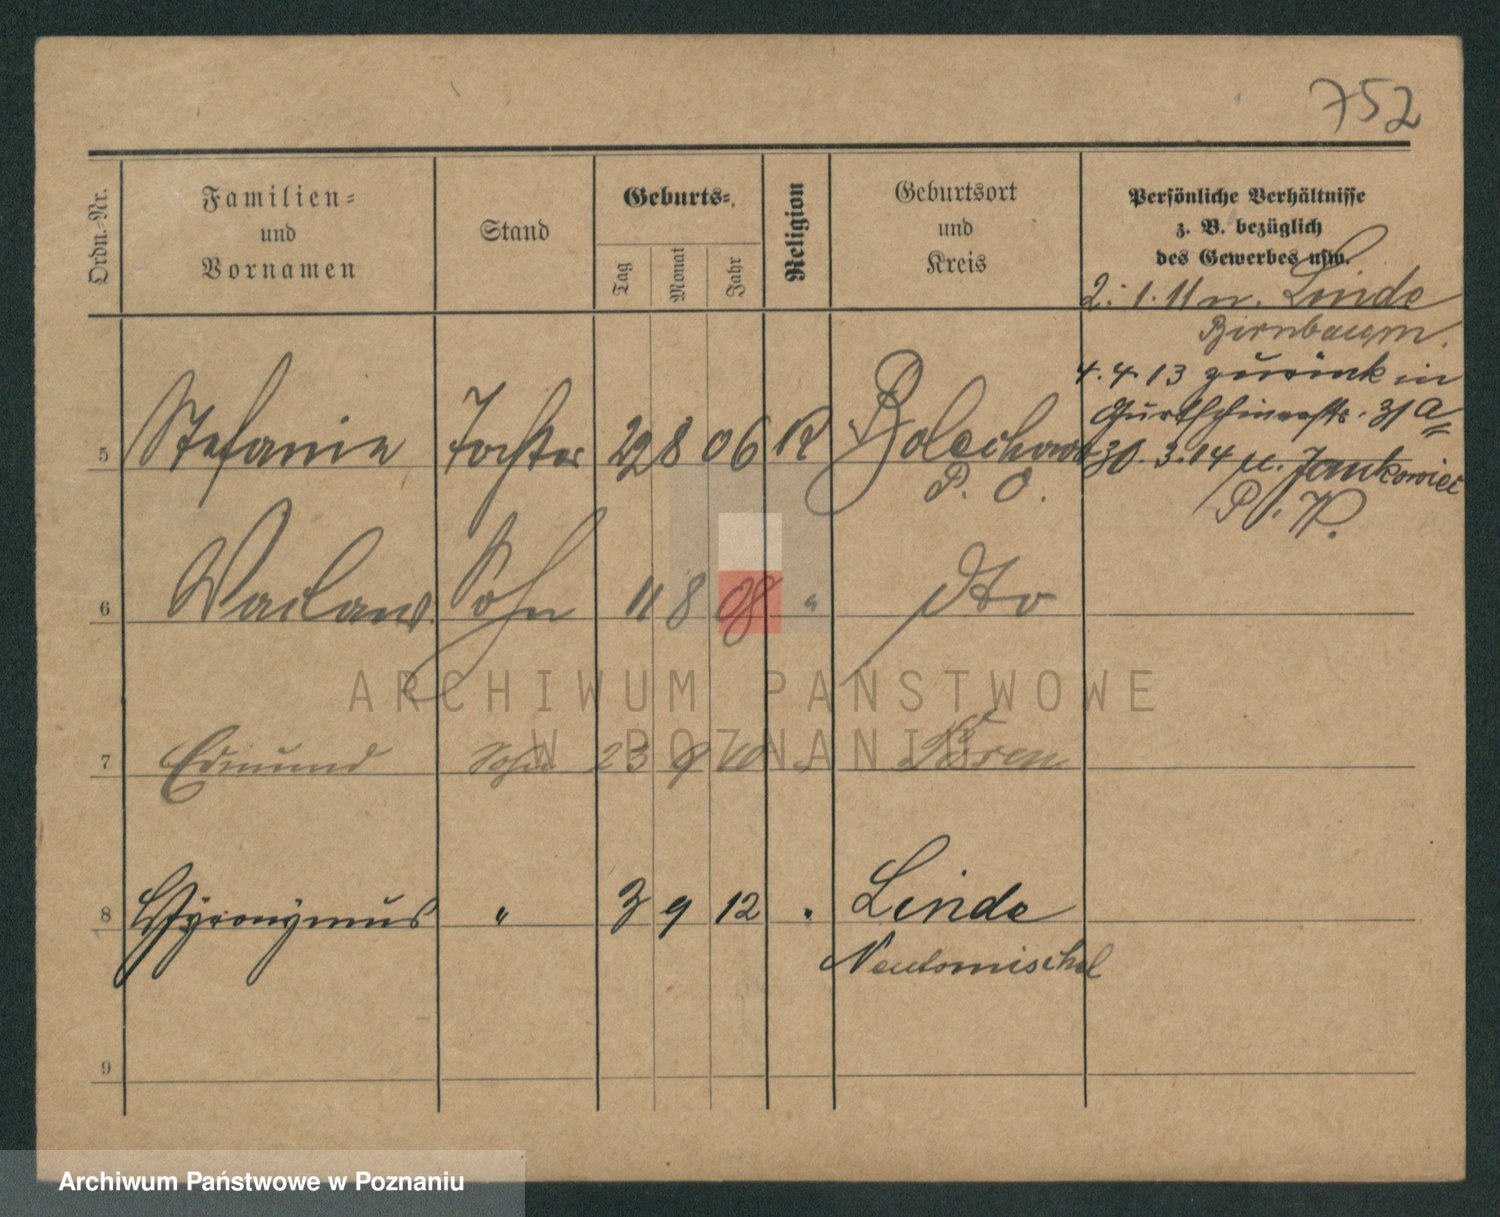 752
Ordn.-Nr.
Familien=
und
Vornamen
Stand
Geburts=
Tag
Monat
Jahr
Religion
Geburtsort
und
Kreis
Persönliche Verhältnisse
z. B. bezüglich
des Gewerbes usw.
2. 1. 11 n. Linde
Birnbaum.
4. 4. 13 zurück in
31a
5 Stefanie Tochter 8 06 R Bolechowo 30. 3. 14 n. Jankowice
P. O. P. W.
6 Waclaw Sohn 11 8 08 " dto
7 Edmund Sohn 23 9 10 "
8 Hyronymus " 3 9 12 " Linde
Neutomischel
9
ARCHIWUM PAŃSTWOWE
W POZNANIU
Archiwum Państwowe w Poznaniu